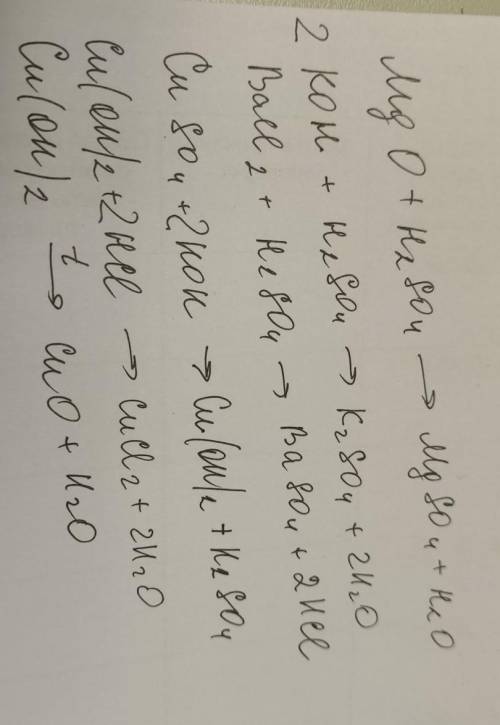 MgO + H₂SO₄ → MgSO₄ + H₂O
2 KOH + H₂SO₄ → K₂SO₄ + 2H₂O
BaCl₂ + H₂SO₄ → BaSO₄ + 2HCl
CuSO₄ + 2KOH → Cu(OH)₂ + K₂SO₄
Cu(OH)₂ + 2HCl → CuCl₂ + 2H₂O
Cu(OH)₂ t→ CuO + H₂O